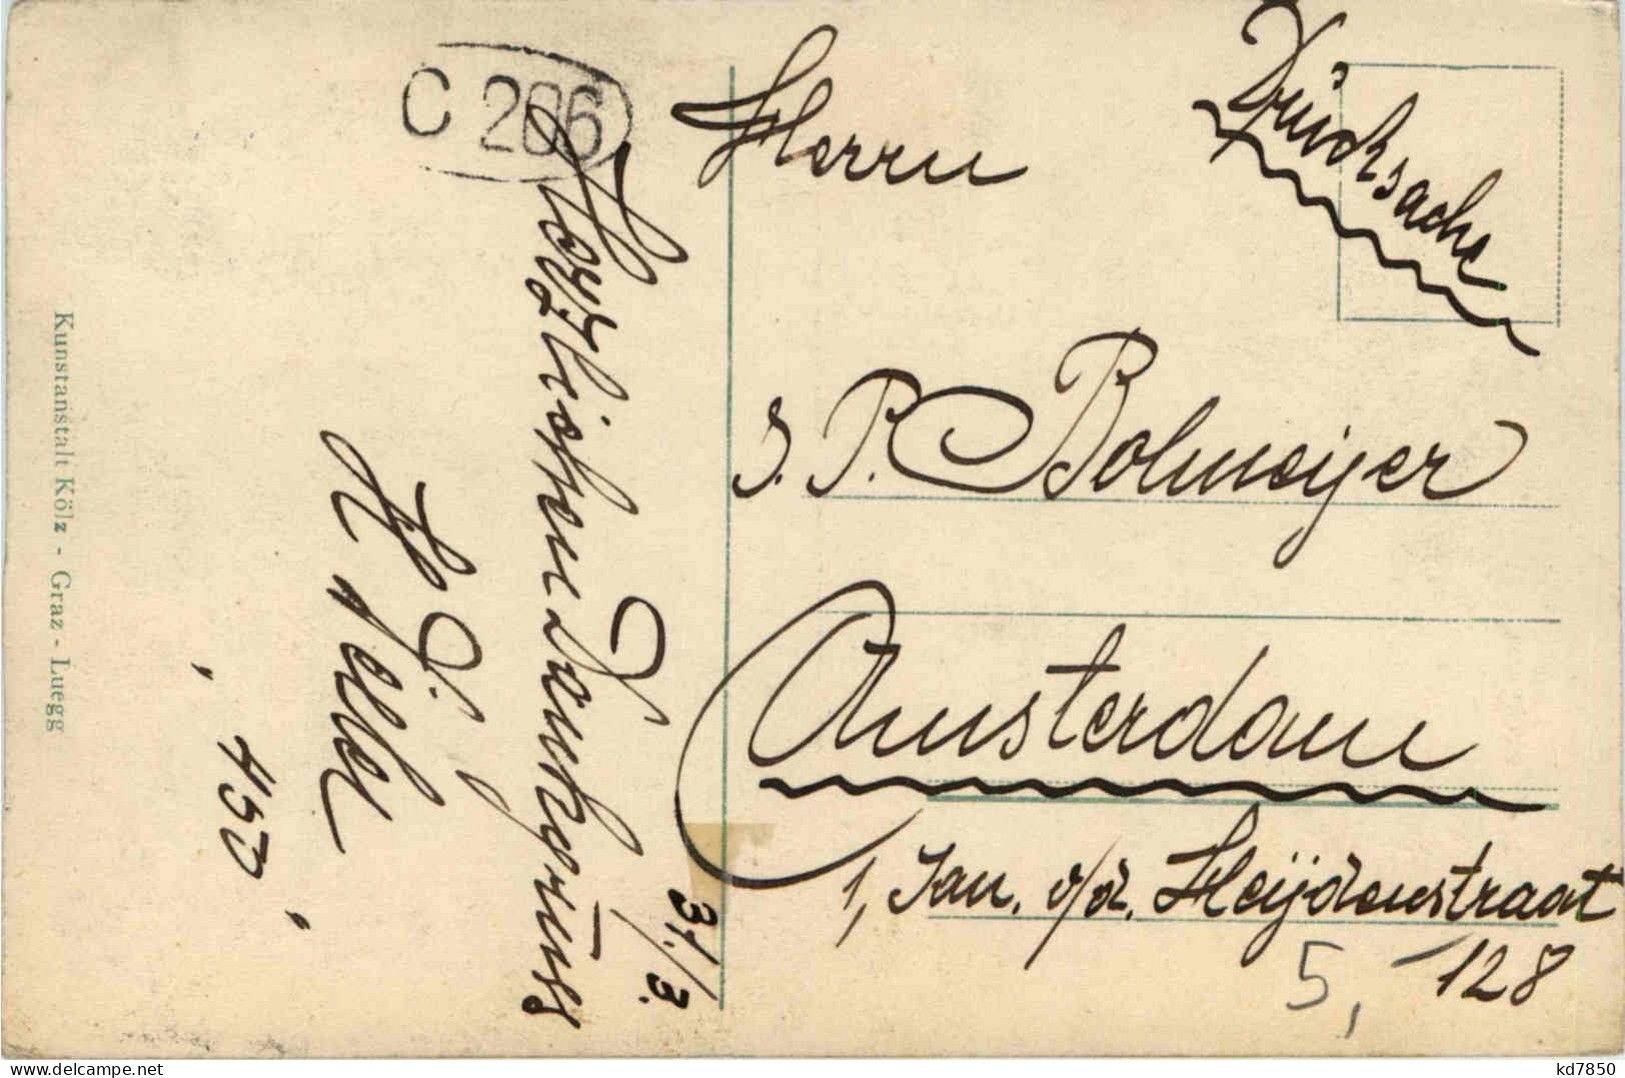 C 266
Herrn
Drucksache
J. P. Bolmeijer
Amsterdam
1, Jan. v/d. Heijdenstraat
128
5,
31./3.
Herzlichen Dankesgruss
450
Kunstanstalt Kölz - Graz - Luegg
kd7850